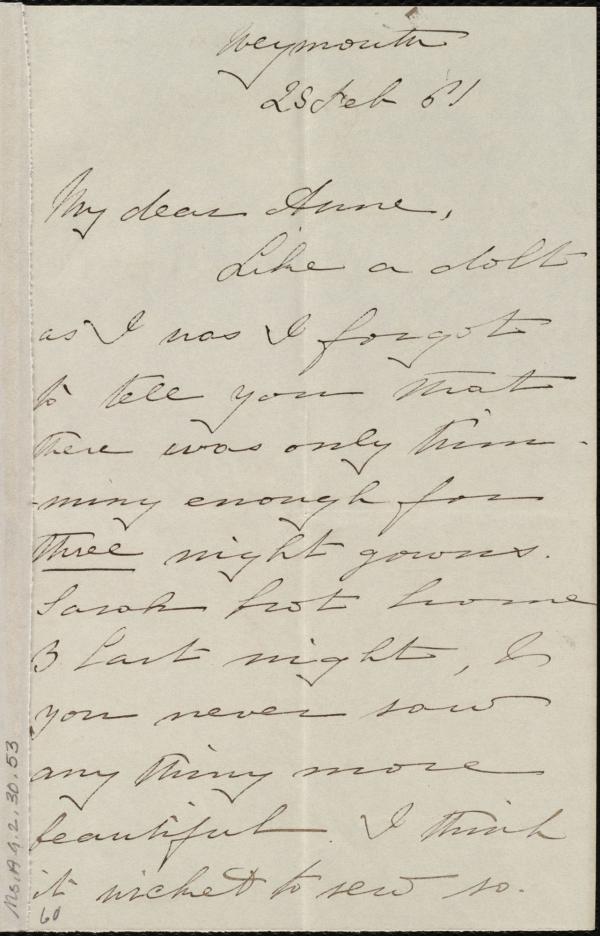 Weymouth
28 Feb 61
My dear Anne,
Like a dolt
as I was I forgot
to tell you that
there was only trim-
ming enough for
three night gowns.
Sarah brot home
3 last night, &
you never saw
any thing more
beautiful. I think
it wicked to sew so.
Ms.A.9.2.30.53
60